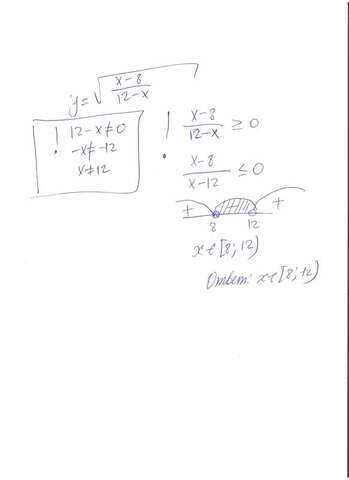 y = √((x-8)/(12-x))
! 12-x≠0
-x≠-12
x≠12
! (x-8)/(12-x) ≥ 0
(x-8)/(x-12) ≤ 0
+ - +
8 12
x∈[8; 12)
Ответ: x∈[8; 12)